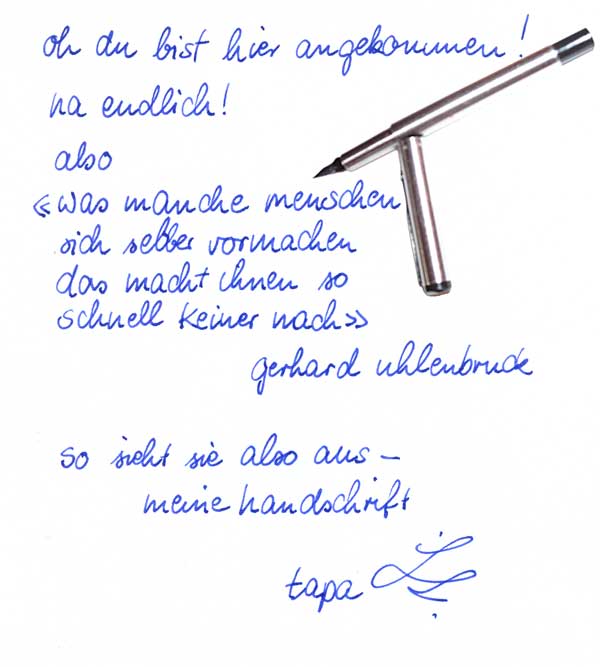 oh du bist hier angekommen!
na endlich!
also
«was manche menschen
sich selber vormachen
das macht ihnen so
schnell keiner nach»
gerhard uhlenbruck
so sieht sie also aus –
meine handschrift
tapa